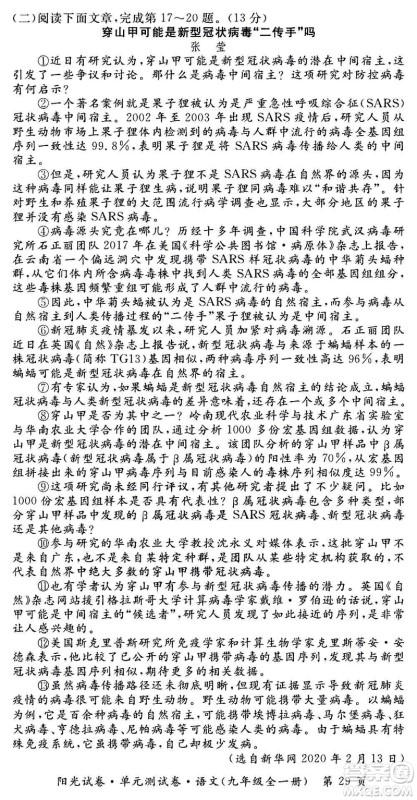 (二)阅读下面文章,完成第17～20题。(13分)
穿山甲可能是新型冠状病毒“二传手”吗
张 莹
①日前有研究认为,穿山甲可能是新冠病毒的潜在中间宿主,这
引发了一些争议和讨论。那什么是病毒中间宿主？这项研究对防控病毒
有何启示？
②一个著名案例就是果子狸被认为是严重急性呼吸综合征(SARS)
冠状病毒中间宿主。2002 年至 2003 年出现 SARS 疫情后,研究人员从
野生动物市场上果子狸体内检测到的病毒与人群中流行的病毒全基因组
序列一致性达 99.8%,表明果子狸将 SARS 病毒传播给人类的中间
宿主。
③但是,研究人员认为果子狸并不是 SARS 病毒在自然界的源头,因为
这种病毒同样能让果子狸生病,说明果子狸同病毒难以“和谐共存”。针
对野生和养殖果子狸的大范围流行病学调查也显示,大部分地区的果子
狸并没有感染 SARS 病毒。
④病毒源头究竟在哪儿？历经十多年调查,中国科学院武汉病毒研
究所石正丽团队 2017 年在美国《科学公共图书馆·病原体》杂志上报告,
在云南省一个偏远洞穴中发现携带 SARS 样冠状病毒的中华菊头蝠种
群,从它们体内所含病毒毒株中找到人类 SARS 病毒的全部基因组组分,
这些毒株基因频繁重组可能形成了人群中流行的病毒。
⑤因此,中华菊头蝠被认为是 SARS 病毒的自然宿主,而参与病毒从
自然宿主到人类传播过程的“二传手”果子狸被认为是中间宿主。
⑥新冠肺炎疫情暴发以来,研究人员加紧对病毒溯源。石正丽团队
近日在英国《自然》杂志上报告说,新型冠状病毒与来源于蝙蝠样本的一
株冠状病毒(简称 TG13)基因相似,两种病毒序列一致性高达 96%,表明
蝙蝠可能是新型冠状病毒在自然界的宿主。
⑦有专家认为,如果蝙蝠是新型冠状病毒自然宿主的结论成立,蝙蝠
与人类感染的病毒的差异意味着,还存在中间宿主。
⑧穿山甲是否为其中之一？岭南现代农业科学与技术广东省实验室
与华南农业大学合作的团队,通过分析 1000 多份宏基因组样品,认为穿
山甲是新型冠状病毒的潜在中间宿主。该团队分析的穿山甲样品中 β
属冠状病毒(新型冠状病毒属于 β 属冠状病毒)的阳性率为 70%,从宏基因
组拼接出来的穿山甲病毒序列与目前感染人的毒株序列相似度达 99%。
⑨这项研究尚未经同行评议,有其他研究者提出了不少疑问。比如
1000 份宏基因组样品是否具有代表性？β 属冠状病毒包含多种类型,
部分穿山甲样品中发现的 β 属冠状病毒是 SARS 病毒、新型冠状病毒
还是其他病毒？
⑩参与研究的华南农业大学教授沈永义对媒体表示,这批穿山甲不
是来自广东,也不是来自某特定种群,是不同批次来自不同个体,不代表
自然界中绝大多数的穿山甲携带冠状病毒。
⑪也有学者认为穿山甲有参与新型冠状病毒传播的潜力。英国《自
然》杂志网站援引格拉斯哥大学计算病毒学家戴维·罗伯逊的话说,由于
在寻找中间宿主的“候选者”,研究人员得到了非常相近的基因序列,是非常
让人感兴趣的。
⑫美国斯克里普斯研究所免疫学家和计算生物学家克里斯蒂安·安
德森表示,他比较了已公开的穿山甲携带的病毒的基因序列,发现其与新
型冠状病毒的基因序列非常相似。
⑬虽然病毒传播路径还未彻底明晰,但现有证据表明导致新冠肺炎
疫情的病毒最初来源于野生动物。研究人员表示,许多野生动物都可能
成为病毒传播的中间宿主,可能携带埃博拉病毒、马尔堡病毒、马瘟病毒、狂
犬病毒、亨德拉病毒、尼帕病毒、冠状病毒等。例如,蝙蝠由于具有
特殊免疫系统,它虽携带病毒却很少生病。
(选自新华网 2020 年 2 月 13 日)
阳光试卷·单元测试卷·语文(九年级全一册) 第 29 页